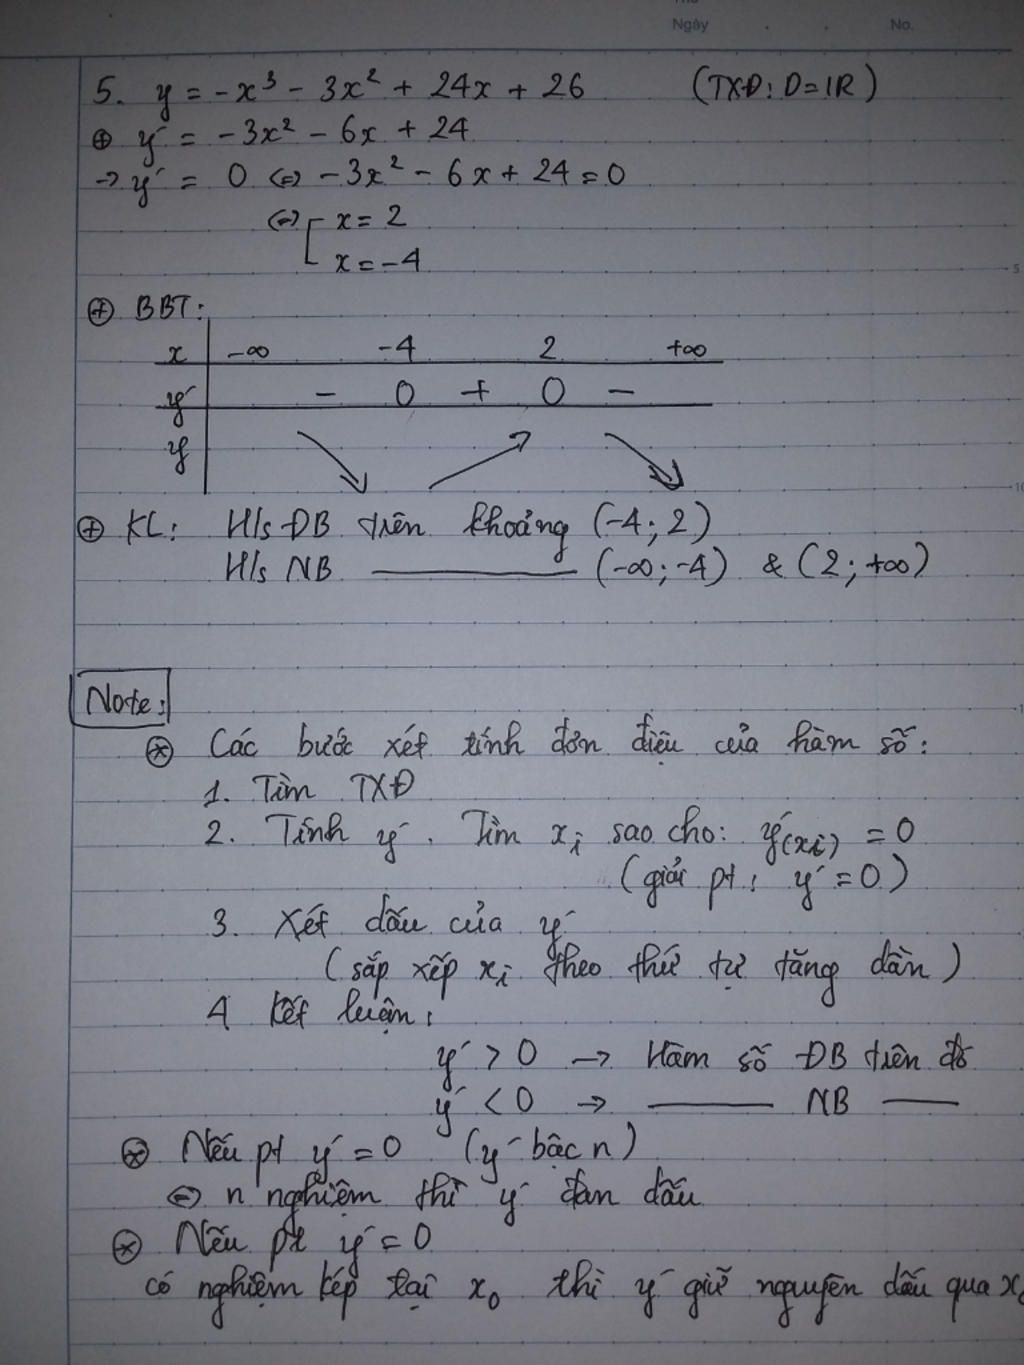 Thứ
Ngày . . No.
5. y = -x³ - 3x² + 24x + 26 (TXĐ: D = IR)
⊕ y' = -3x² - 6x + 24
→ y' = 0 ⇔ -3x² - 6x + 24 = 0
⇔ [ x = 2
x = -4
5
⊕ BBT:
x | -∞ -4 2 +∞
y' | - 0 + 0 -
y | ↘ ↗ ↘
10
⊕ KL: H/s ĐB trên khoảng (-4; 2)
H/s NB ——— (-∞; -4) & (2; +∞)
Note:
⊛ Các bước xét tính đơn điệu của hàm số:
1. Tìm TXĐ
2. Tính y'. Tìm xᵢ sao cho: y'(xᵢ) = 0
(giải pt: y' = 0)
3. Xét dấu của y'
(sắp xếp xᵢ theo thứ tự tăng dần)
4 Kết luận:
y' > 0 → Hàm số ĐB trên đó
y' < 0 → ——— NB ———
⊛ Nếu pt y' = 0 (y' bậc n)
⇔ n nghiệm thì y' đan dấu
⊛ Nếu pt y' = 0
có nghiệm kép tại x₀ thì y' giữ nguyên dấu qua x₀